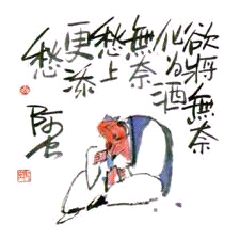 欲將無奈
化為酒
無奈
愁上
更添
愁